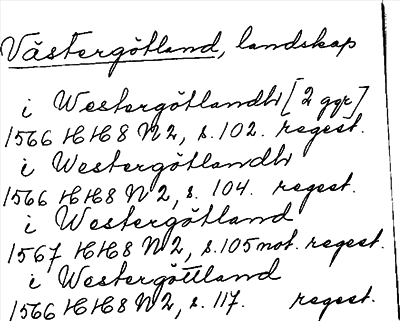 Västergötland, landskap
i Westergötlandh [2 ggr]
1566 HH8 N2, s. 102. regest.
i Westergötlandh
1566 HH8 N2, s. 104. regest.
i Westergötland
1567 HH8 N2, s. 105 not. regest.
i Westergöttland
1566 HH8 N2, s. 117. regest.